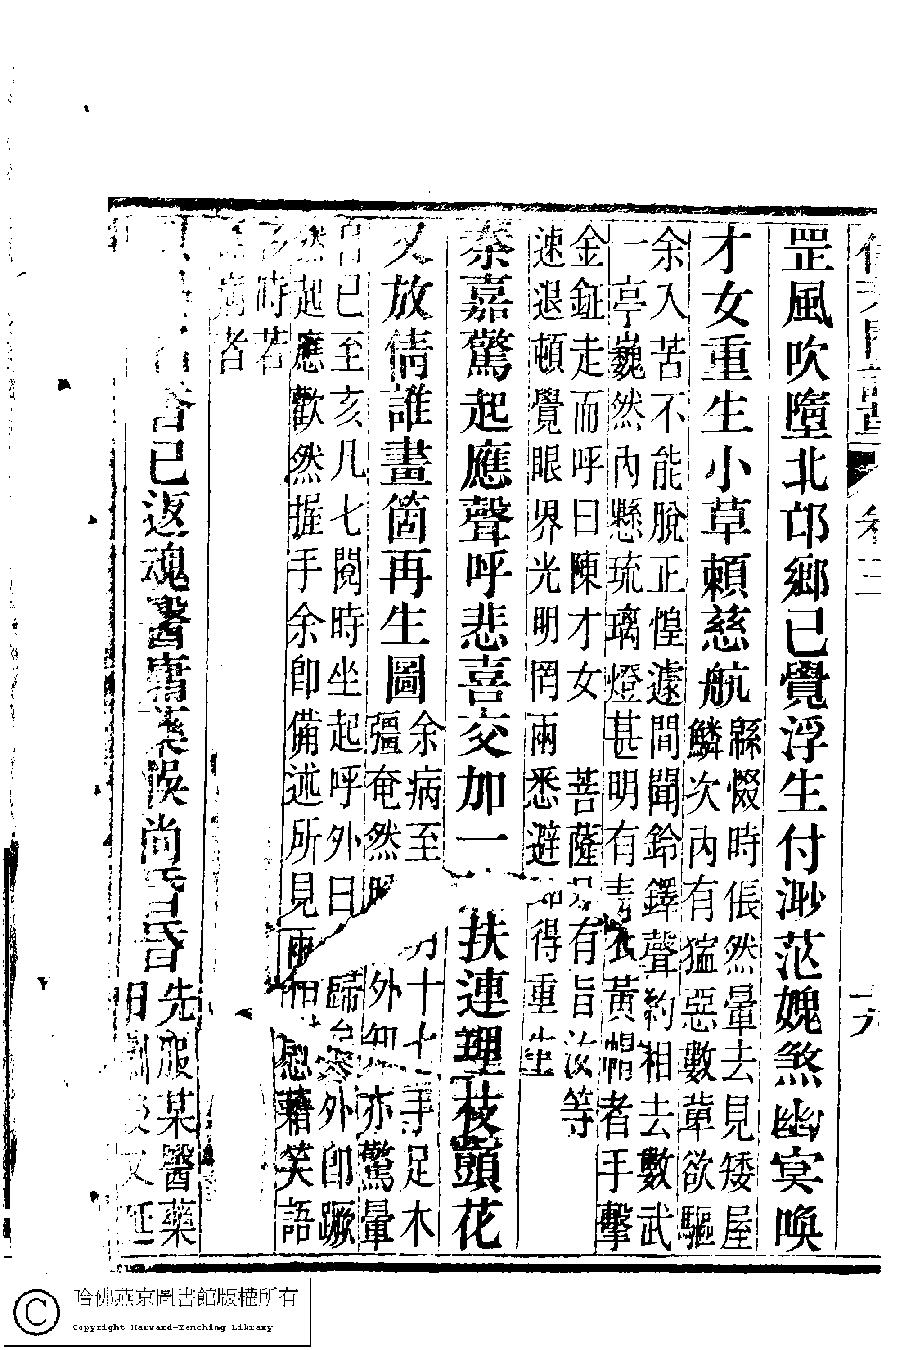 卷三
罡風吹墮北邙鄉已覺浮生付渺茫媿煞幽冥喚
才女重生小草賴慈航
緜惙時倀然暈去見矮屋
鱗次內有猛惡數輩欲驅
余入苦不能脫正惶遽間聞鈴鐸聲約相去數武
一亭巍然內懸琉璃燈甚明有青衣黃帽者手擊
金鉦走而呼曰陳才女 菩薩有旨汝等
速退頓覺眼界光明罔兩悉避得重生
秦嘉驚起應聲呼悲喜交加一扶連理枝頭花
又放倩誰畫箇再生圖
余病至十七手足木
彊奄然外亦驚暈
自巳至亥凡七閱時坐起呼外曰歸外即蹶
然起應歡然握手余即備述所見兩相慰藉笑語
多時若
病者
香已返魂醫庸藥誤尚昏昏
先服某醫藥
又延